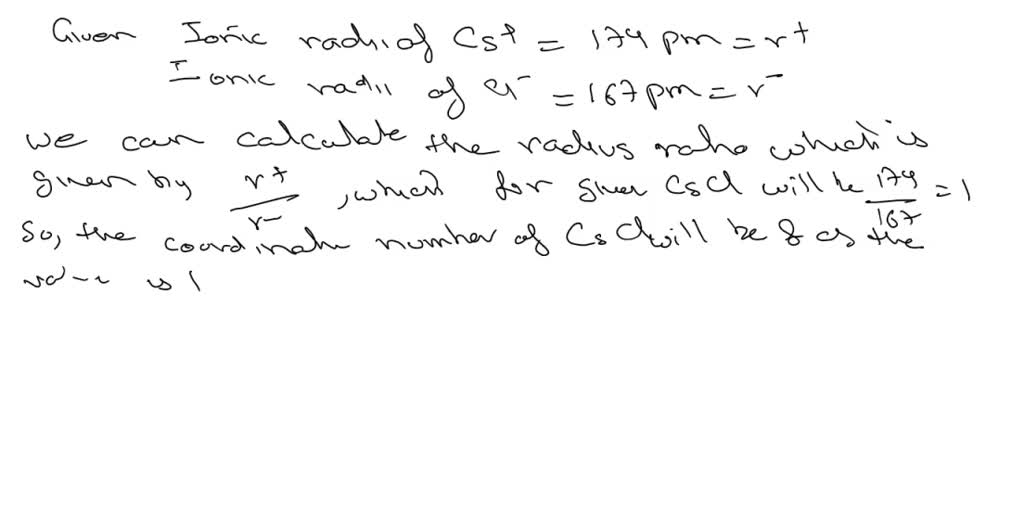 Given Ionic radii of Cs+ = 174 pm = r+
Ionic radii of Cl- = 167 pm = r-
we can calculate the radius ratio which is
given by r+/r-, which for given CsCl will be 174/167 = 1
So, the coordinate number of CsCl will be 8 as the
is 1